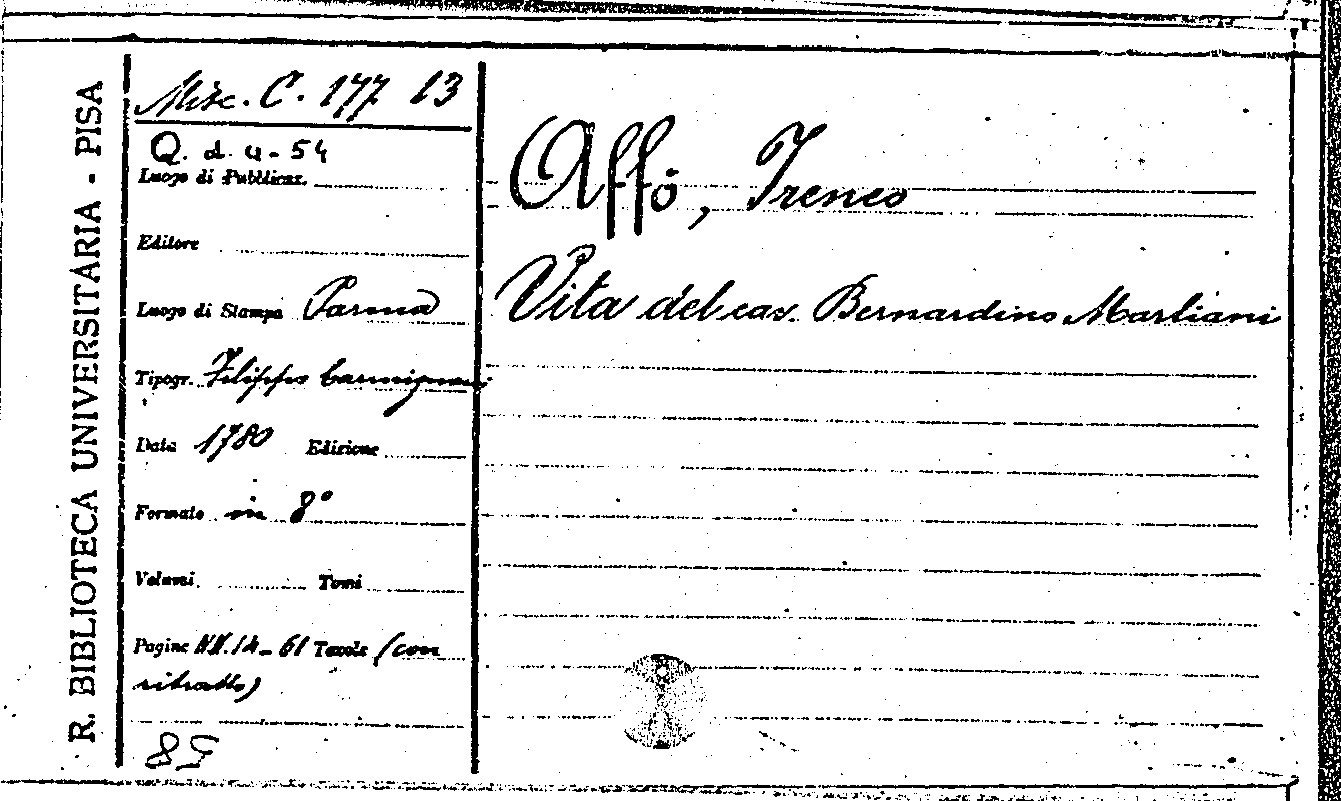 R. BIBLIOTECA UNIVERSITARIA - PISA
Misc. C. 177 13
Q. d. 4 - 54
Luogo di Pubblicaz.
Editore
Luogo di Stampa Parma
Tipogr. Filippo Carmignani
Data 1780 Edizione
Formato in 8°
Volumi Tomi
Pagine NN. 14 - 61 Tavole (con
ritratto)
85
Affò, Ireneo
Vita del cav. Bernardino Marliani